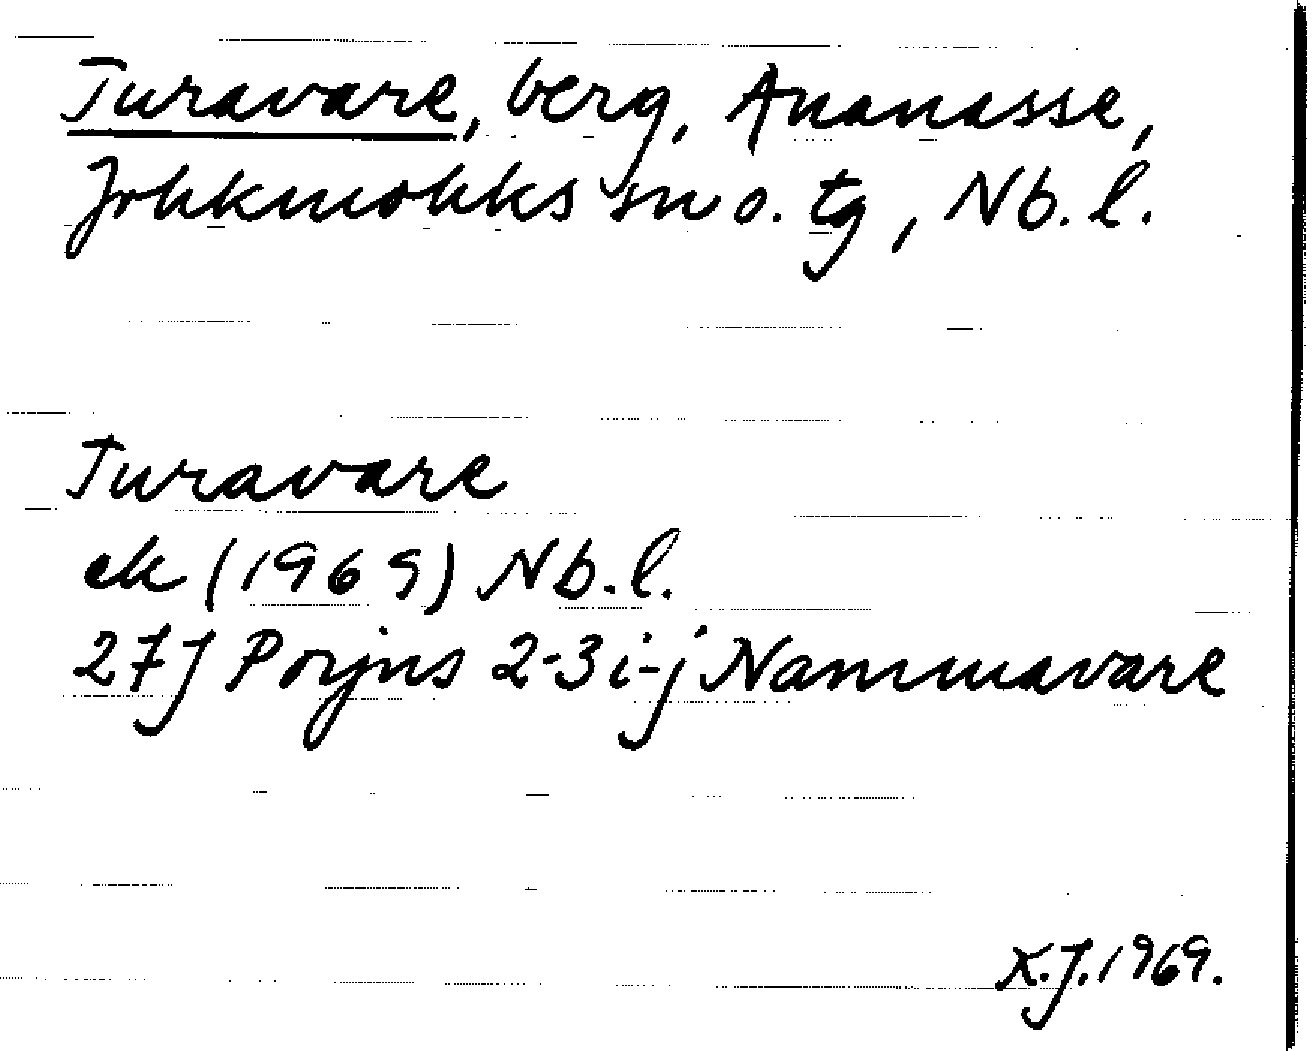 Turavare, berg, Ananasse,
Jokkmokks sn o. tg, Nb. l.
Turavare
ek (1969) Nb. l.
27J Porjus 2-3 i-j Nammavare
K.J. 1969.